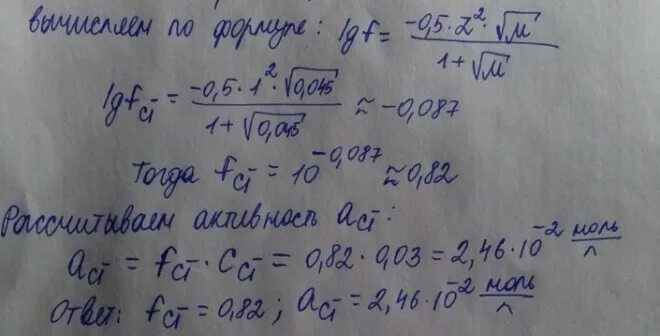 вычисляем по формуле: lgf = -0,5·Z²·√μ / 1+√μ
lgf Cl⁻ = -0,5·1²·√0,045 / 1+√0,045 ≈ -0,087
Тогда f Cl⁻ = 10^-0,087 ≈ 0,82
Рассчитываем активность a Cl⁻:
a Cl⁻ = f Cl⁻ · C Cl⁻ = 0,82 · 0,03 = 2,46·10⁻² моль/л
Ответ: f Cl⁻ = 0,82; a Cl⁻ = 2,46·10⁻² моль/л